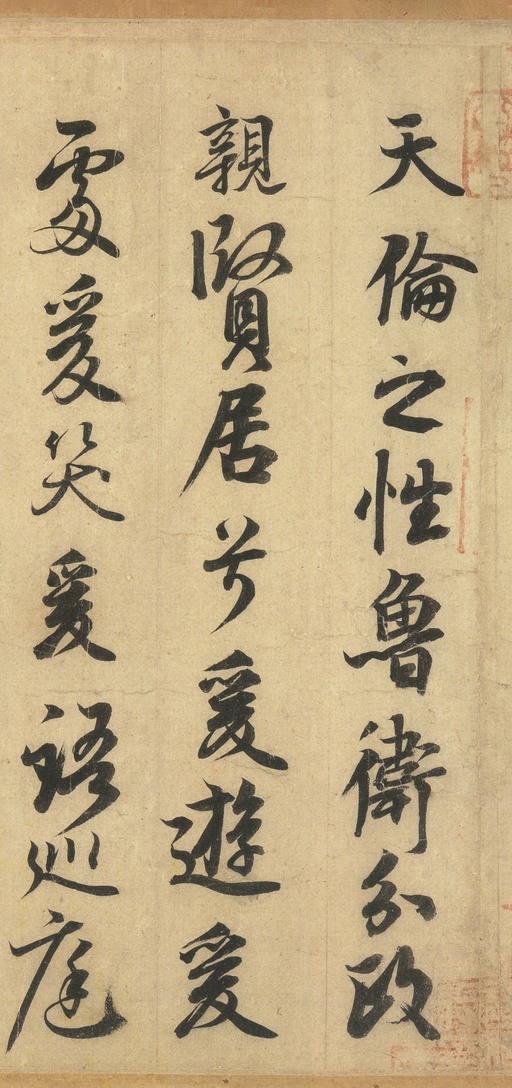 天倫之性魯衛分政
親賢居兮爰遊爰
處爰笑爰語巡庭